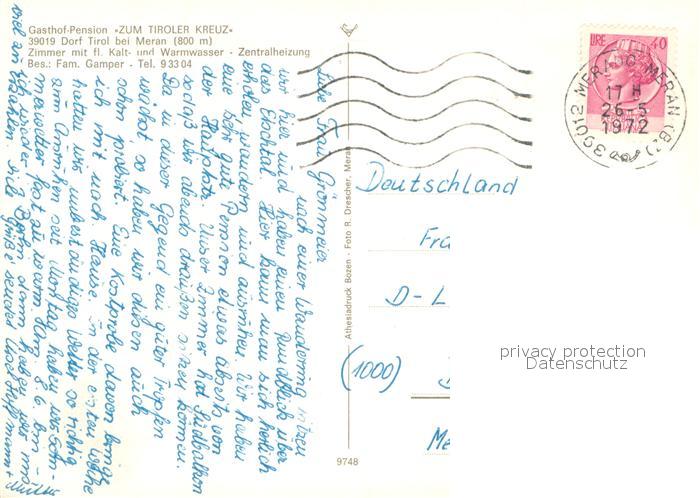 Gasthof-Pension »ZUM TIROLER KREUZ«
39019 Dorf Tirol bei Meran (800 m)
Zimmer mit fl. Kalt- und Warmwasser - Zentralheizung
Bes.: Fam. Gamper - Tel. 9 33 04
Liebe Frau Grönmeier
nach einer Wanderung sitzen
wir hier und haben einen Rundblick über
das Etschtal. Hier kann man sich herrlich
erholen, wandern und ausruhen. Wir haben
eine sehr gute Pension etwas abseits von
der Hauptstr. Unser Zimmer hat Südbalkon
sodaß wir abends draußen sitzen können.
Da in dieser Gegend ein guter Tropfen
wächst, so haben wir diesen auch
schon probiert. Eine Kostprobe davon bringe
ich mit nach Hause. In der ersten Woche
hatten wir unbeständiges Wetter, so richtig
zum Ausruhen seit Montag haben wir
fast zu warm. Am 8.6. bin
ich wieder in
Grüße sendet
Athesiadruck Bozen - Foto R. Drescher, Meran
9748
LIRE 40
39012 MERANO-MERAN (BZ)
17 H
26-5
1972
Deutschland
Fra
D-L
(1000)
Me
privacy protection
Datenschutz